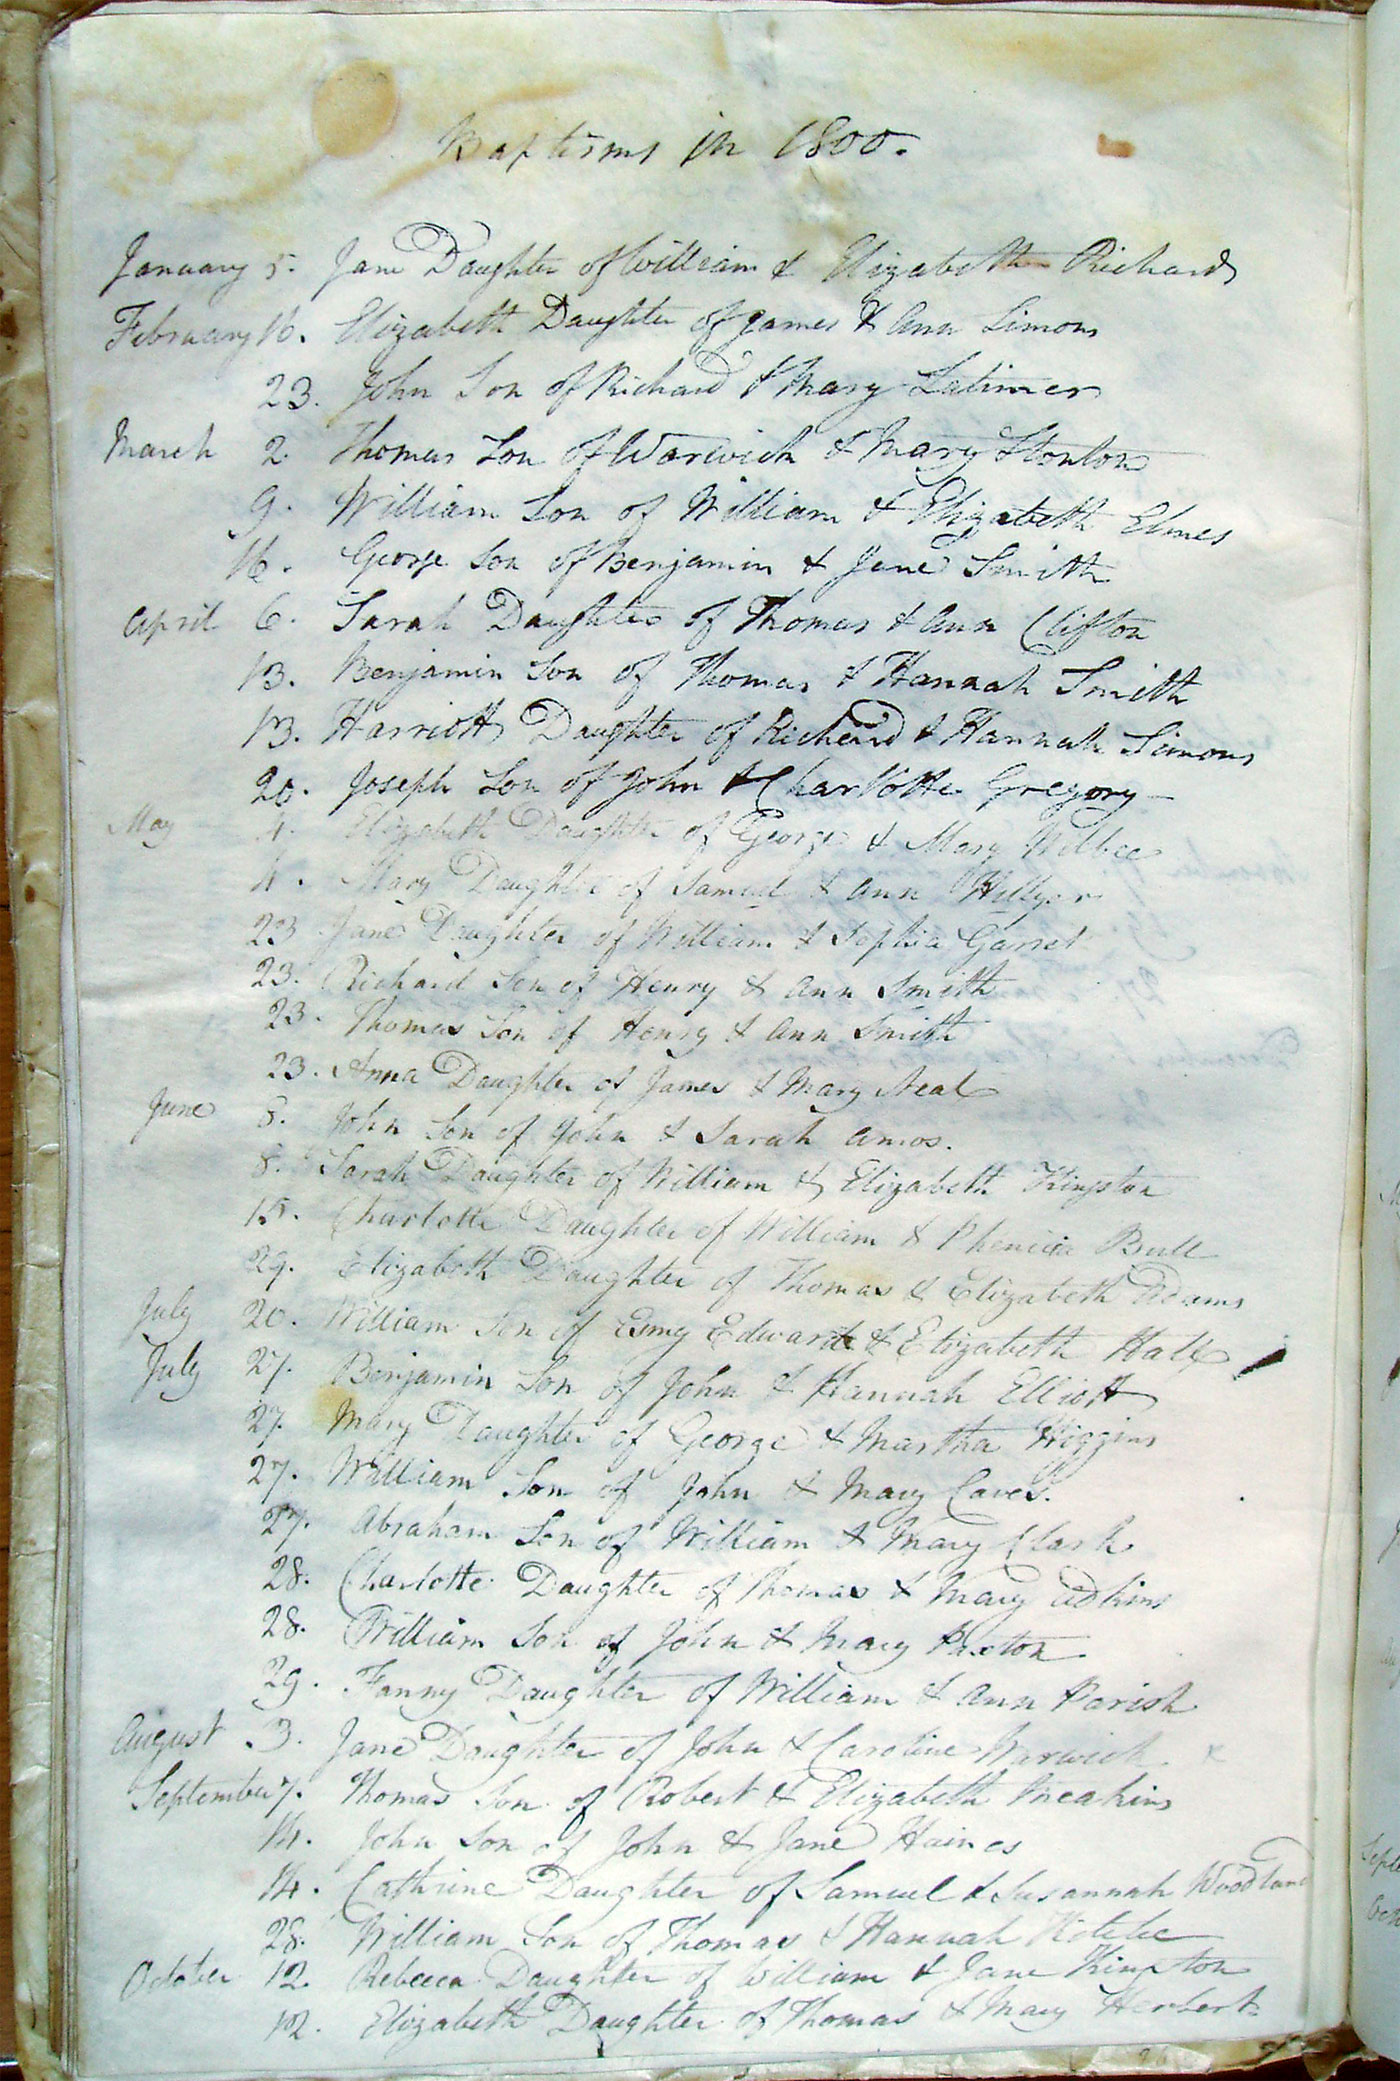 Baptisms in 1800.
January 5. Jane Daughter of William & Elizabeth Richards
February 16. Elizabeth Daughter of James & Ann Simons
23. John Son of Richard & Mary Latimer
March 2. Thomas Son of Warwick & Mary Stonton
9. William Son of William & Elizabeth Elmes
16. George Son of Benjamin & Jane Smith
April 6. Sarah Daughter of Thomas & Ann Clifton
13. Benjamin Son of Thomas & Hannah Smith
13. Harriott Daughter of Richard & Hannah Simons
20. Joseph Son of John & Charlotte Gregory
May 4. Elizabeth Daughter of George & Mary
4. Mary Daughter of Samuel & Ann Hillyer
23 Jane Daughter of William & Sophia Garret
23. Richard Son of Henry & Ann Smith
23. Thomas Son of Henry & Ann Smith
23. Anna Daughter of James & Mary Neal
June 8. John Son of John & Sarah Amos.
8. Sarah Daughter of William & Elizabeth Kingston
15. Charlotte Daughter of William & Phenicia Bull
29. Elizabeth Daughter of Thomas & Elizabeth Adams
July 20. William Son of Esmy Edward & Elizabeth Hall
July 27. Benjamin Son of John & Hannah Elliott
27. Mary Daughter of George & Martha Higgins
27. William Son of John & Mary Caves.
27. Abraham Son of William & Mary Clark
28. Charlotte Daughter of Thomas & Mary Adkins
28. William Son of John & Mary Paxton
29. Fanny Daughter of William & Ann Parish
August 3. Jane Daughter of John & Caroline Warwick
September 7. Thomas Son of Robert & Elizabeth Meakins
14. John Son of John & Jane Haines
14. Cathrine Daughter of Samuel & Susannah Woodland
28. William Son of Thomas & Hannah
October 12. Rebecca Daughter of William & Jane Kingston
12. Elizabeth Daughter of Thomas & Mary Herbert